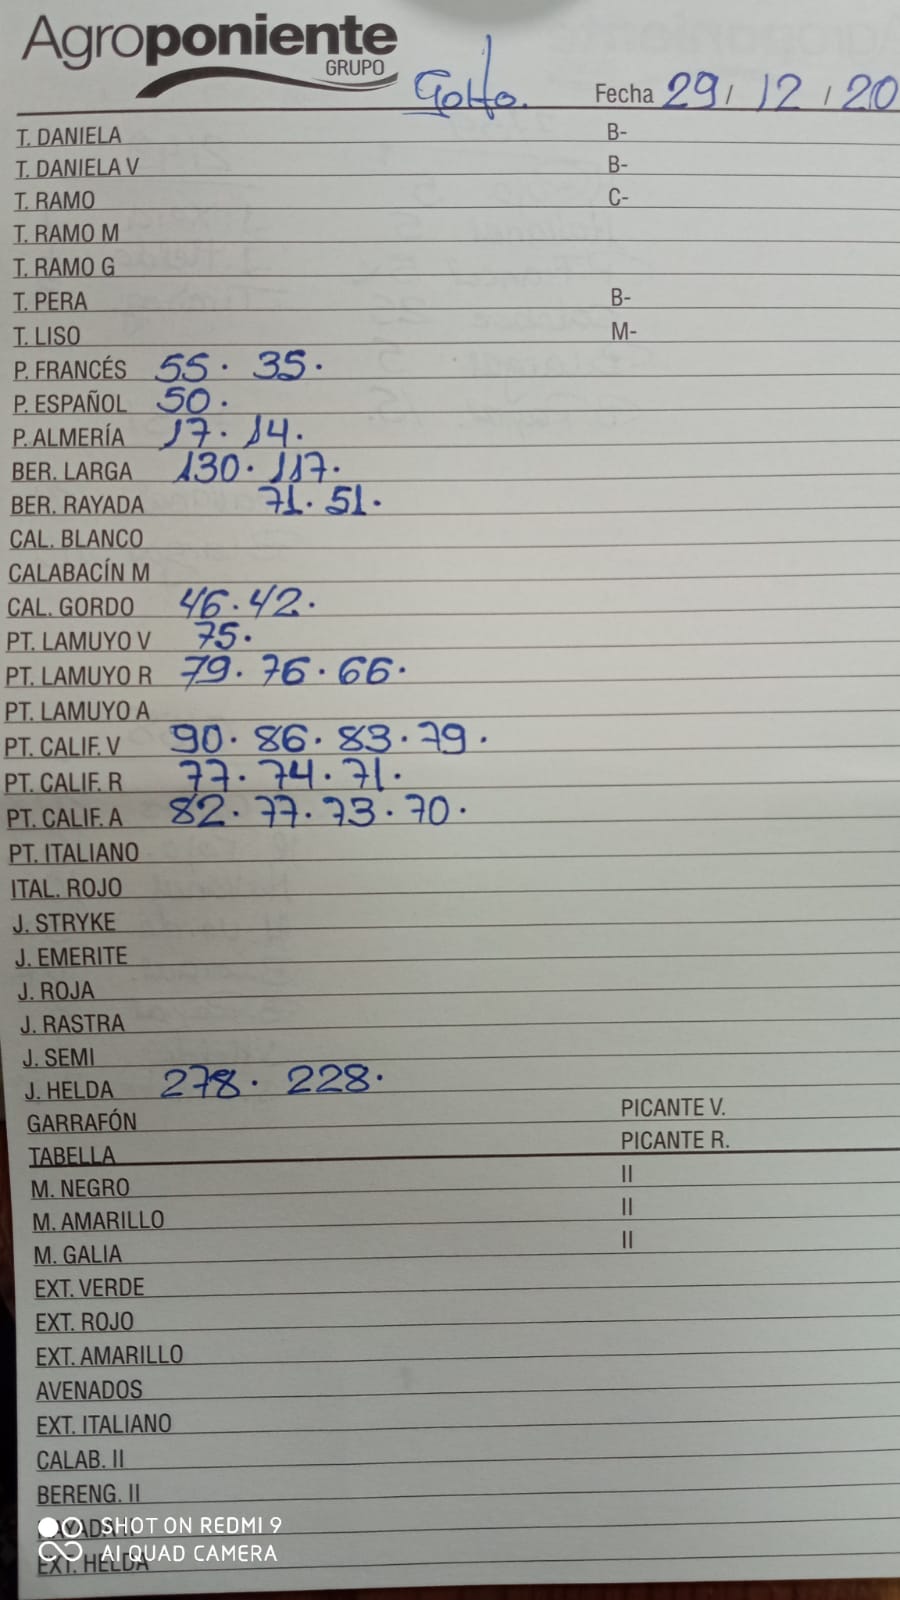 Agroponiente
GRUPO
Golfo. Fecha 29 / 12 / 20
T. DANIELA B-
T. DANIELA V B-
T. RAMO C-
T. RAMO M
T. RAMO G
T. PERA B-
T. LISO M-
P. FRANCÉS 55 · 35 ·
P. ESPAÑOL 50 ·
P. ALMERÍA 17 · 14 ·
BER. LARGA 130 · 117 ·
BER. RAYADA 71 · 51 ·
CAL. BLANCO
CALABACÍN M
CAL. GORDO 46 · 42 ·
PT. LAMUYO V 75 ·
PT. LAMUYO R 79 · 76 · 66 ·
PT. LAMUYO A
PT. CALIF. V 90 · 86 · 83 · 79 ·
PT. CALIF. R 77 · 74 · 71 ·
PT. CALIF. A 82 · 77 · 73 · 70 ·
PT. ITALIANO
ITAL. ROJO
J. STRYKE
J. EMERITE
J. ROJA
J. RASTRA
J. SEMI
J. HELDA 278 · 228 ·
GARRAFÓN PICANTE V.
TABELLA PICANTE R.
M. NEGRO II
M. AMARILLO II
M. GALIA II
EXT. VERDE
EXT. ROJO
EXT. AMARILLO
AVENADOS
EXT. ITALIANO
CALAB. II
BERENG. II
SHOT ON REDMI 9
AI QUAD CAMERA
EXT. HELDA